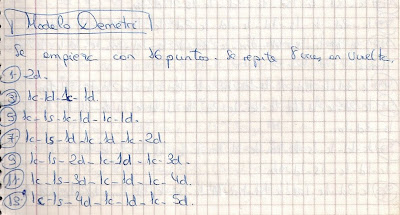 Modelo Demetri
Se empieza con 16 puntos. Se repite 8 veces en vuelta.
① 2d.
③ 1c-1d-1c-1d.
⑤ 1c-1s-1c-1d-1c-1d.
⑦ 1c-1s-1d-1c-1d-1c-2d
⑨ 1c-1s-2d-1c-1d-1c-3d-
⑪ 1c-1s-3d-1c-1d-1c-4d.
⑬ 1c-1s-4d-1c-1d-1c-5d.